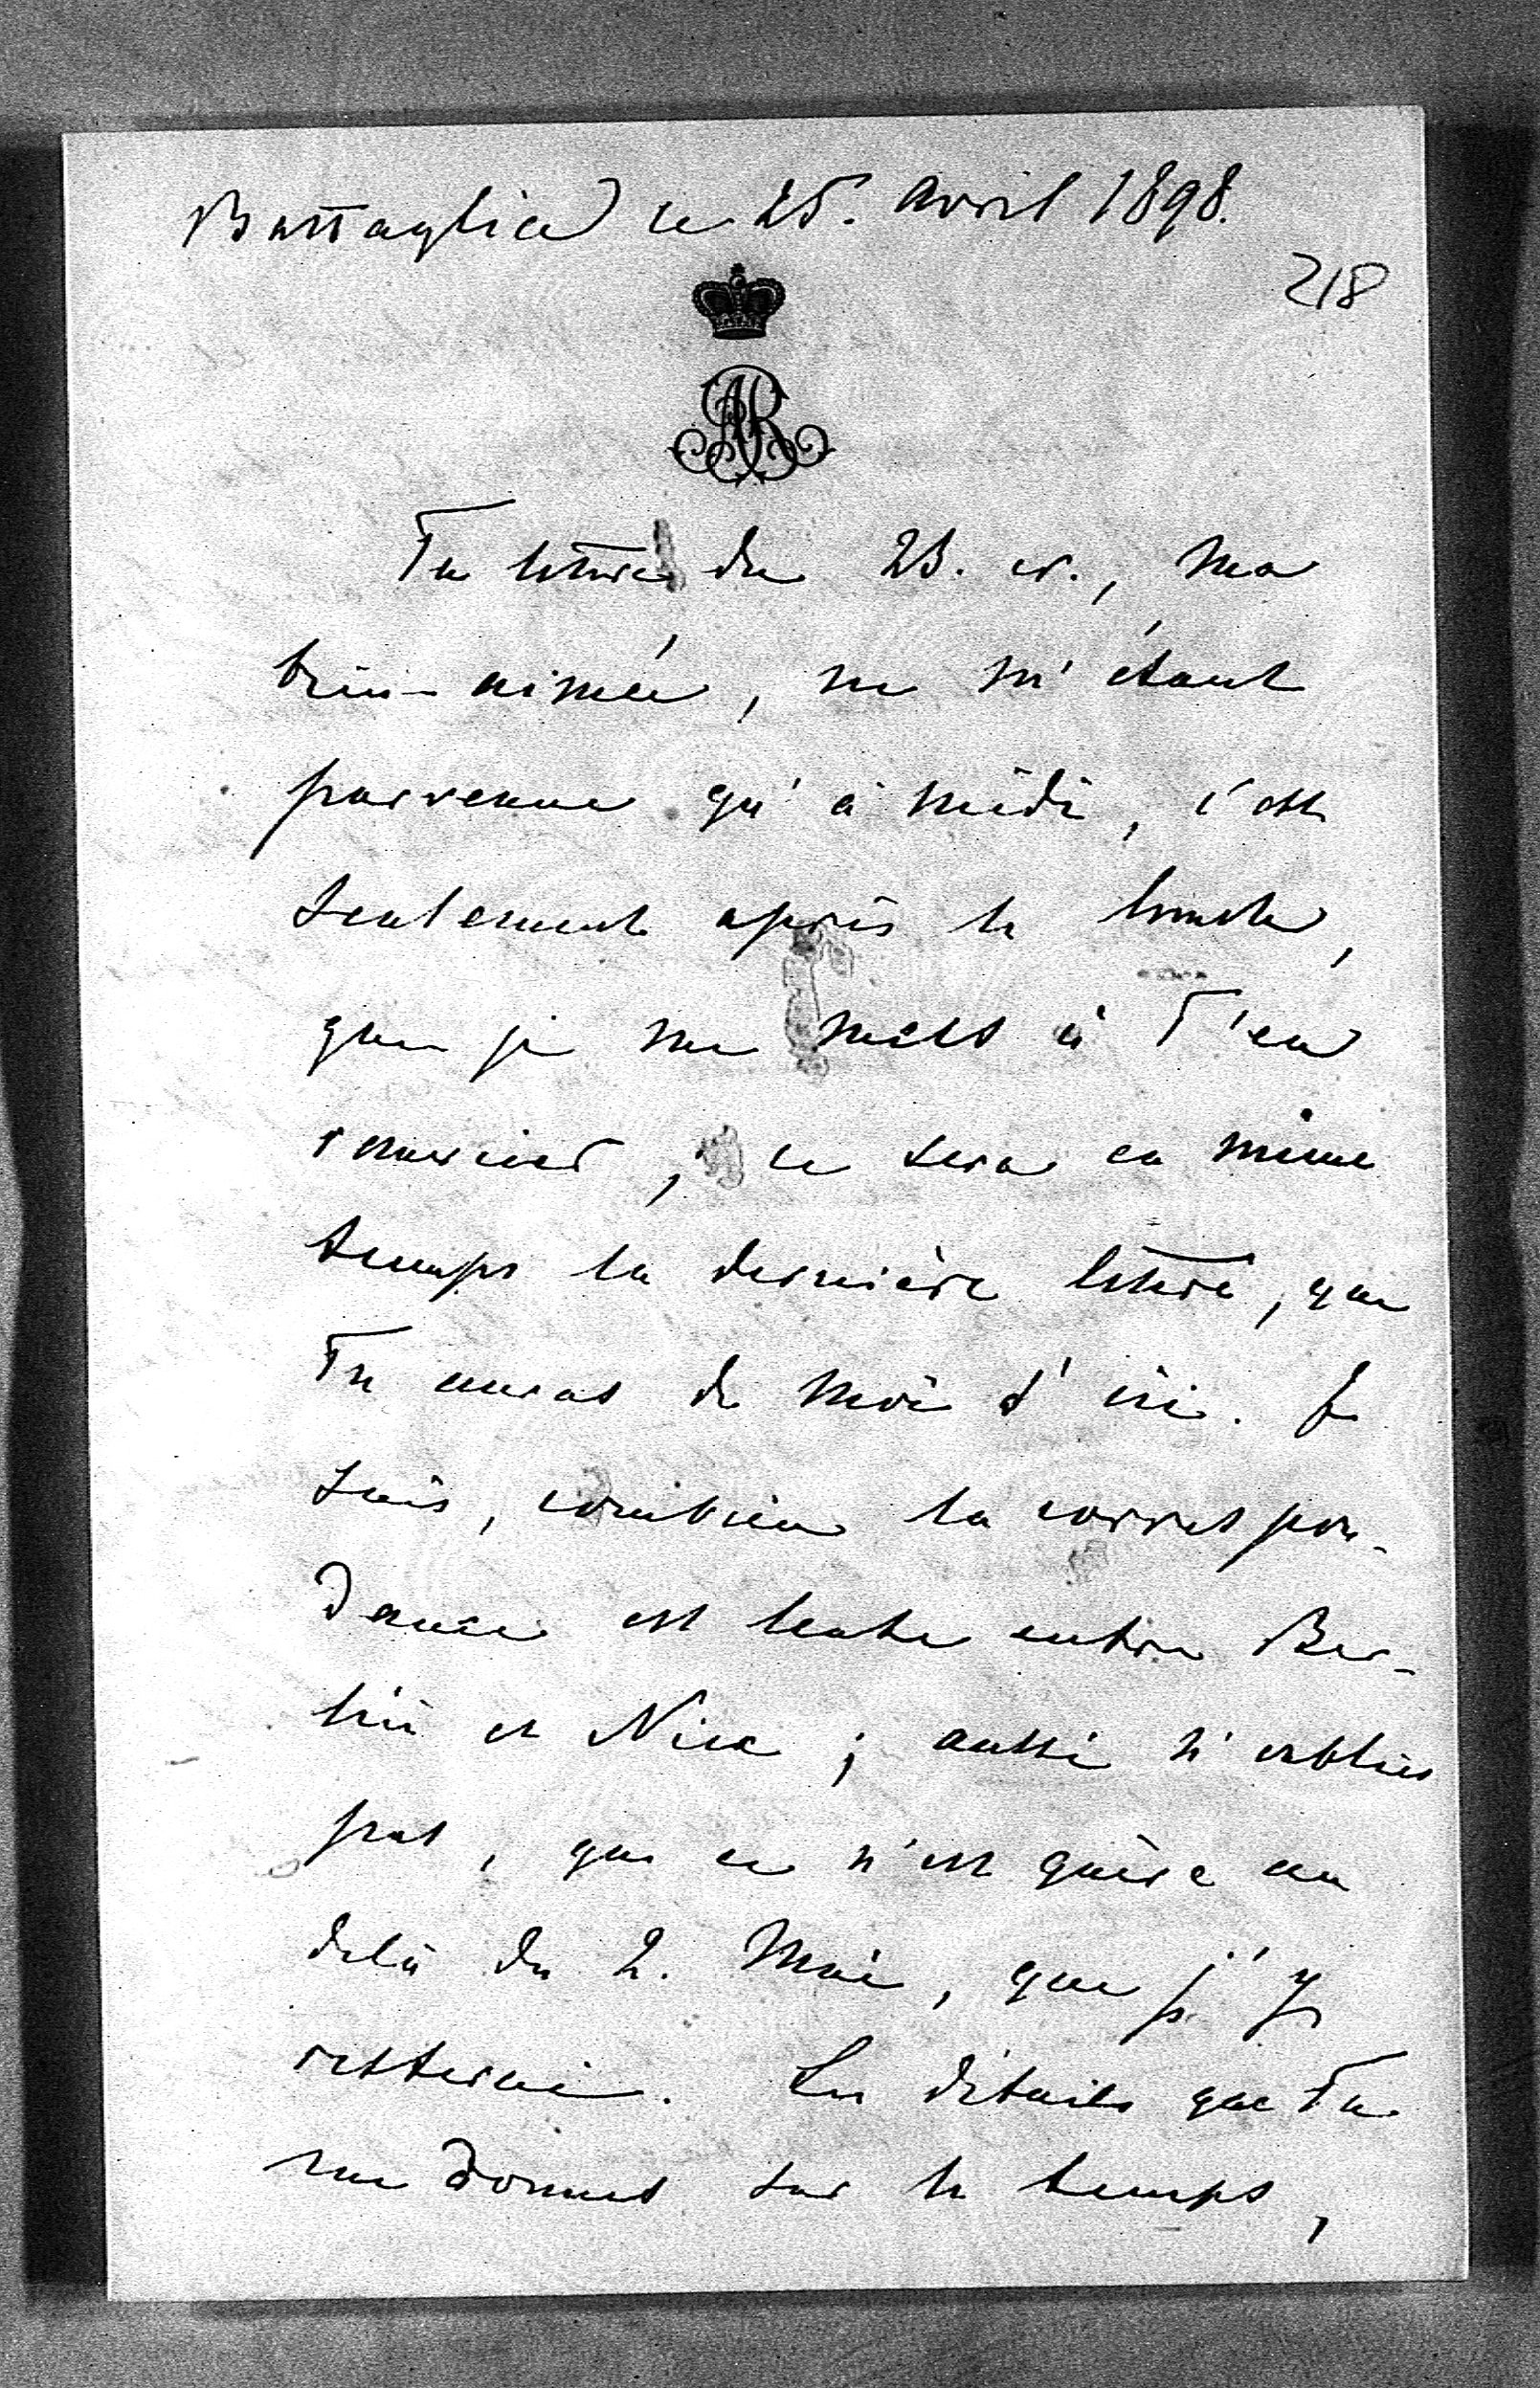 Battaglia ce 25. avril 1898.
218
AR
Ta lettre du 23. cr., ma
bien-aimée, ne m'étant
parvenue qu'à midi, c'est
seulement après le lunch,
que je me mets à T'en
remercier; ce sera en même
temps la dernière lettre, que
Tu auras de moi d'ici. Je
sais, combien la correspon-
dance est lente entre Ber-
lin et Nice; aussi n'oublies
pas, que ce n'est guère au
delà du 2. Mai, que j'y
resterai. Les détails que Tu
me donnes sur le temps,